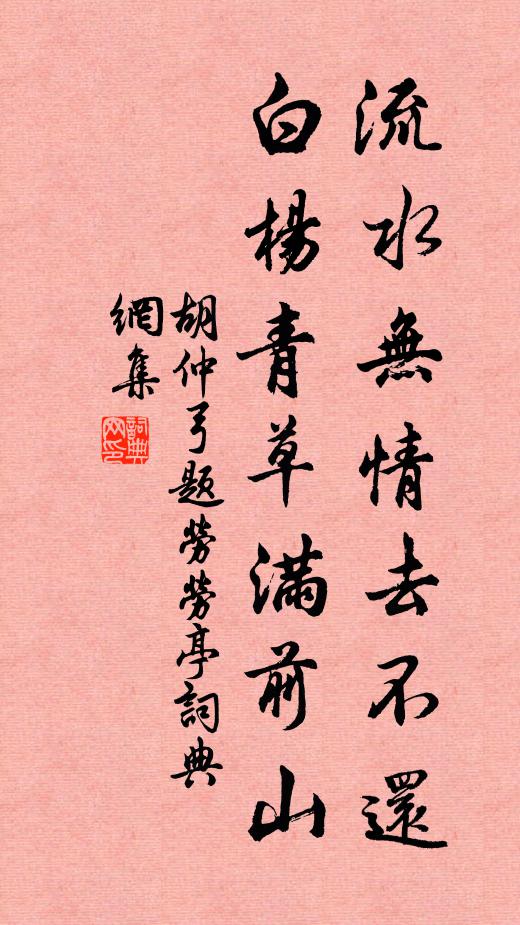 流水無情去不還
白楊青草滿前山
胡仲弓題勞勞亭詞典
網集
詞典
网印